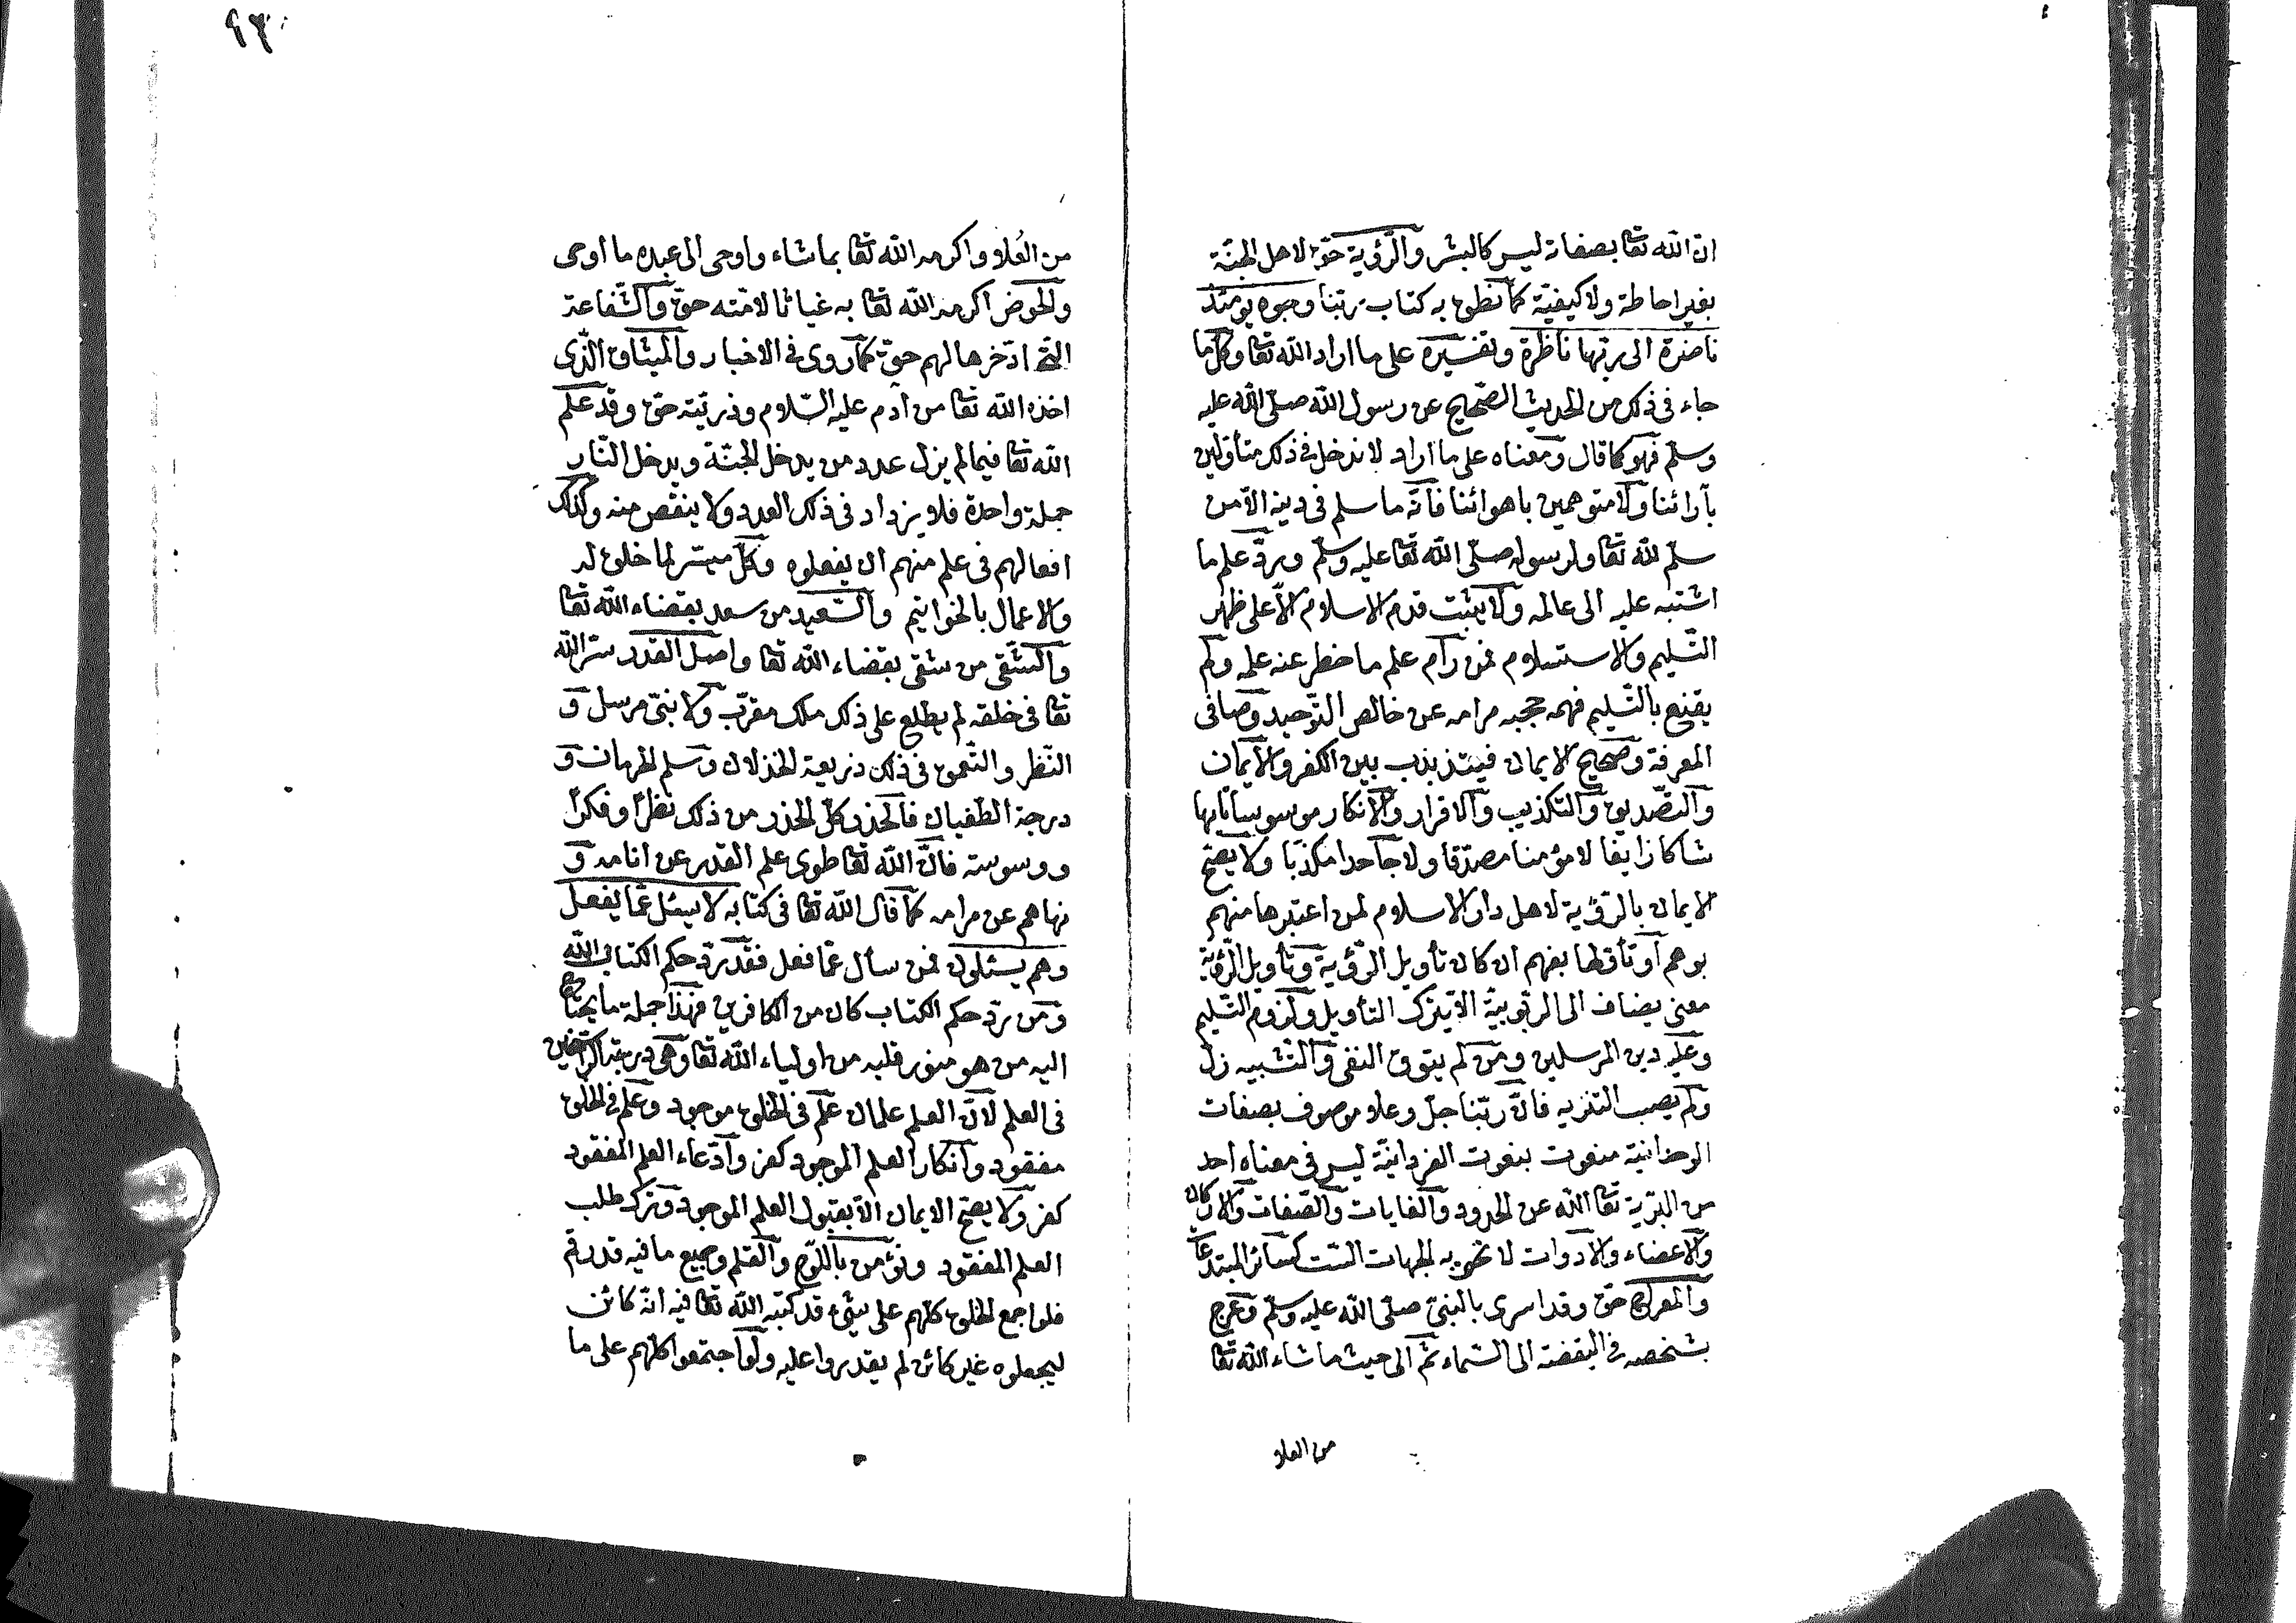 ان الله تعا بصفاته ليس كالبشر والرؤية حق لاهل الجنة
بغير احاطة ولا كيفية كما نطق به كتاب ربنا وجوه يومئذ
ناضرة الى ربها ناظرة وتفسيره على ما اراد الله تعا وكل ما
جاء فى ذلك من الحديث الصحيح عن رسول الله صلى الله عليه
وسلم فهو كما قال ومعناه على ما اراد لا ندخل فى ذلك متأولين
بآرائنا ولا متوهمين باهوائنا فانه ما سلم فى دينه الا من
سلم لله تعا ولرسوله صلى الله تعا عليه وسلم ورد علم ما
اشتبه عليه الى عالمه ولا يثبت قدم الاسلام الا على ظهر
التسليم والاستسلام فمن رام علم ما حظر عنه علمه ولم
يقنع بالتسليم فهمه حجبه مرامه عن خالص التوحيد وصافى
المعرفة وصحيح الايمان فيتذبذب بين الكفر والايمان
والتصديق والتكذيب والاقرار والانكار موسوسا تايها
شاكا زايغا لا مؤمنا مصدقا ولا جاحدا مكذبا ولا يصح
الايمان بالرؤية لاهل دار الاسلام لمن اعتبرها منهم
بوهم او تأولها بفهم ان كان تأويل الرؤية وتأويل الرؤية
معنى يضاف الى الربوبية الا بترك التأويل ولزوم التسليم
وعليه دين المرسلين ومن لم يتوق النفى والتشبيه زل
ولم يصب التنزيه فان ربنا جل وعلا موصوف بصفات
الوحدانية منعوت بنعوت الفردانية ليس فى معناه احد
من البرية تعا الله عن الحدود والغايات والصفات والاركان
والاعضاء والادوات لا تحويه الجهات الست كسائر المبتدعات
والمعراج حق وقد اسرى بالنبى صلى الله عليه وسلم وعرج
بشخصه فى اليقضة الى السماء ثم الى حيث ما شاء الله تعا
من العلا
٩٣
من العُلا واكرمه الله تعا بما شاء واوحى الى عبده ما اوحى
والحوض اكرمه الله تعا به غياثا لامته حق والشفاعة
التى ادخرها لهم حق كما روى فى الاخبار والميثاق الذى
اخذه الله تعا من آدم عليه السلام وذريته حق وقد علم
الله تعا فيما لم يزل عدد من يدخل الجنة ويدخل النار
جملة واحدة فلا يزداد فى ذلك العدد ولا ينقص منه وكذلك
افعالهم فى علم منهم ان يفعلوه وكل ميسر لما خلق له
والاعمال بالخواتيم والسعيد من سعد بقضاء الله تعا
والشقى من شقى بقضاء الله تعا واصل القدر سر الله
تعا فى خلقه لم يطلع على ذلك ملك مقرب ولا نبى مرسل و
النظر والتعمق فى ذلك ذريعة الخذلان وسلم الحرمان و
درجة الطغيان فالحذر كل الحذر من ذلك نظرا وفكرا
ووسوسة فان الله تعا طوى علم القدر عن انامه و
نهاهم عن مرامه كما قال الله تعا فى كتابه لا يسئل عما يفعل
وهم يسئلون فمن سأل عما فعل فقد رد حكم الكتاب الله
ومن رد حكم الكتاب كان من الكافرين فهذا جملة ما يحتاج
اليه من هو منور قلبه من اولياء الله تعا وهى درجة الراسخين
فى العلم لان العلم علمان علم فى الخلق موجود وعلم فى الخلق
مفقود وانكار العلم الموجود كفر وادعاء العلم المفقود
كفر ولا يصح الايمان الا بقبول العلم الموجود وترك طلب
العلم المفقود ونؤمن باللوح والقلم وجميع ما فيه قد رقم
فلو اجمع الخلق كلهم على شئ قد كتبه الله تعا فيه انه كائن
ليجعلوه غير كائن لم يقدروا عليه ولو اجتمعوا كلهم على ما